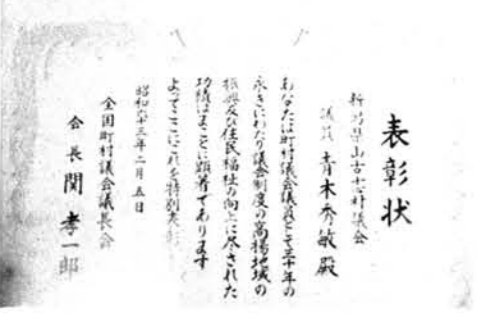 表彰状
新潟県山古志村議会
議員 青木秀敏殿
あなたは町村議会議員として三十年の
永きにわたり議会制度の高揚地域の
振興及び住民福祉の向上に尽された
功績はまことに顕著であります
よってここにこれを特別表彰
昭和六十三年二月五日
全国町村議会議長会
会長 関孝一郎